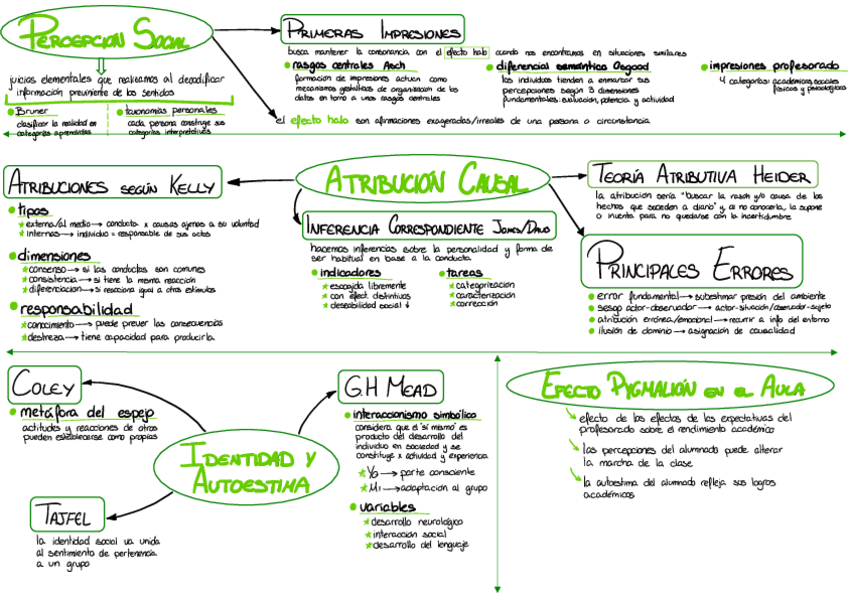 PERCEPCION SOCIAL
juicios elementales que realizamos al decodificar
información proviniente de los sentidos
Bruner
clasificar la realidad en
categorías aprendidas
taxonomías personales
cada persona construye sus
categorías interpretativas
PRIMERAS IMPRESIONES
busca mantener la consonancia con el efecto halo cuando nos encontramos en situaciones similares
rasgos centrales Asch
formación de impresiones actúan como
mecanismos gestálticos de organización de los
datos en torno a unos rasgos centrales
diferencial semántico Osgood
los individuos tienden a enmarcar sus
percepciones según 3 dimensiones
fundamentales: evaluación, potencia y actividad
impresiones profesorado
4 categorías: académicas, sociales
físicas y psicológicas
el efecto halo son afirmaciones exageradas/irreales de una persona o circunstancia
ATRIBUCIÓN CAUSAL
ATRIBUCIONES SEGÚN KELLY
tipos
externa/al medio → conducta x causas ajenas a su voluntad
internas → individuo = responsable de sus actos
dimensiones
consenso → si las conductas son comunes
consistencia → si tiene la misma reacción
diferenciación → si reacciona igual a otros estímulos
responsabilidad
conocimiento → puede prever las consecuencias
destreza → tiene capacidad para producirla
INFERENCIA CORRESPONDIENTE JONES/DAVIS
hacemos inferencias sobre la personalidad y forma de
ser habitual en base a la conducta
indicadores
escogida libremente
con efect. distintivos
deseabilidad social ↓
tareas
categorización
caracterización
corrección
TEORÍA ATRIBUTIVA HEIDER
la atribución sería "buscar la razón y/o causa de los
hechos que suceden a diario" y, al no conocerla, la supone
o inventa para no quedarse con la incertidumbre
PRINCIPALES ERRORES
error fundamental → subestimar presión del ambiente
sesgo actor-observador → actor-situación/observador-sujeto
atribución errónea/emocional → recurrir a info del entorno
ilusión de dominio → asignación de causalidad
IDENTIDAD Y
AUTOESTIMA
COLEY
metáfora del espejo
actitudes y reacciones de otros
pueden establecerse como propias
TAJFEL
la identidad social va unida
al sentimiento de pertenencia
a un grupo
G.H MEAD
interaccionismo simbólico
considera que el "sí mismo" es
producto del desarrollo del
individuo en sociedad y se
constituye x actividad y experiencia
Yo → parte consciente
Mi → adaptación al grupo
variables
desarrollo neurológico
interacción social
desarrollo del lenguaje
EFECTO PYGMALIÓN EN EL AULA
efecto de los efectos de las expectativas del
profesorado sobre el rendimiento académico
las percepciones del alumnado puede alterar
la marcha de la clase
la autoestima del alumnado refleja sus logros
académicos